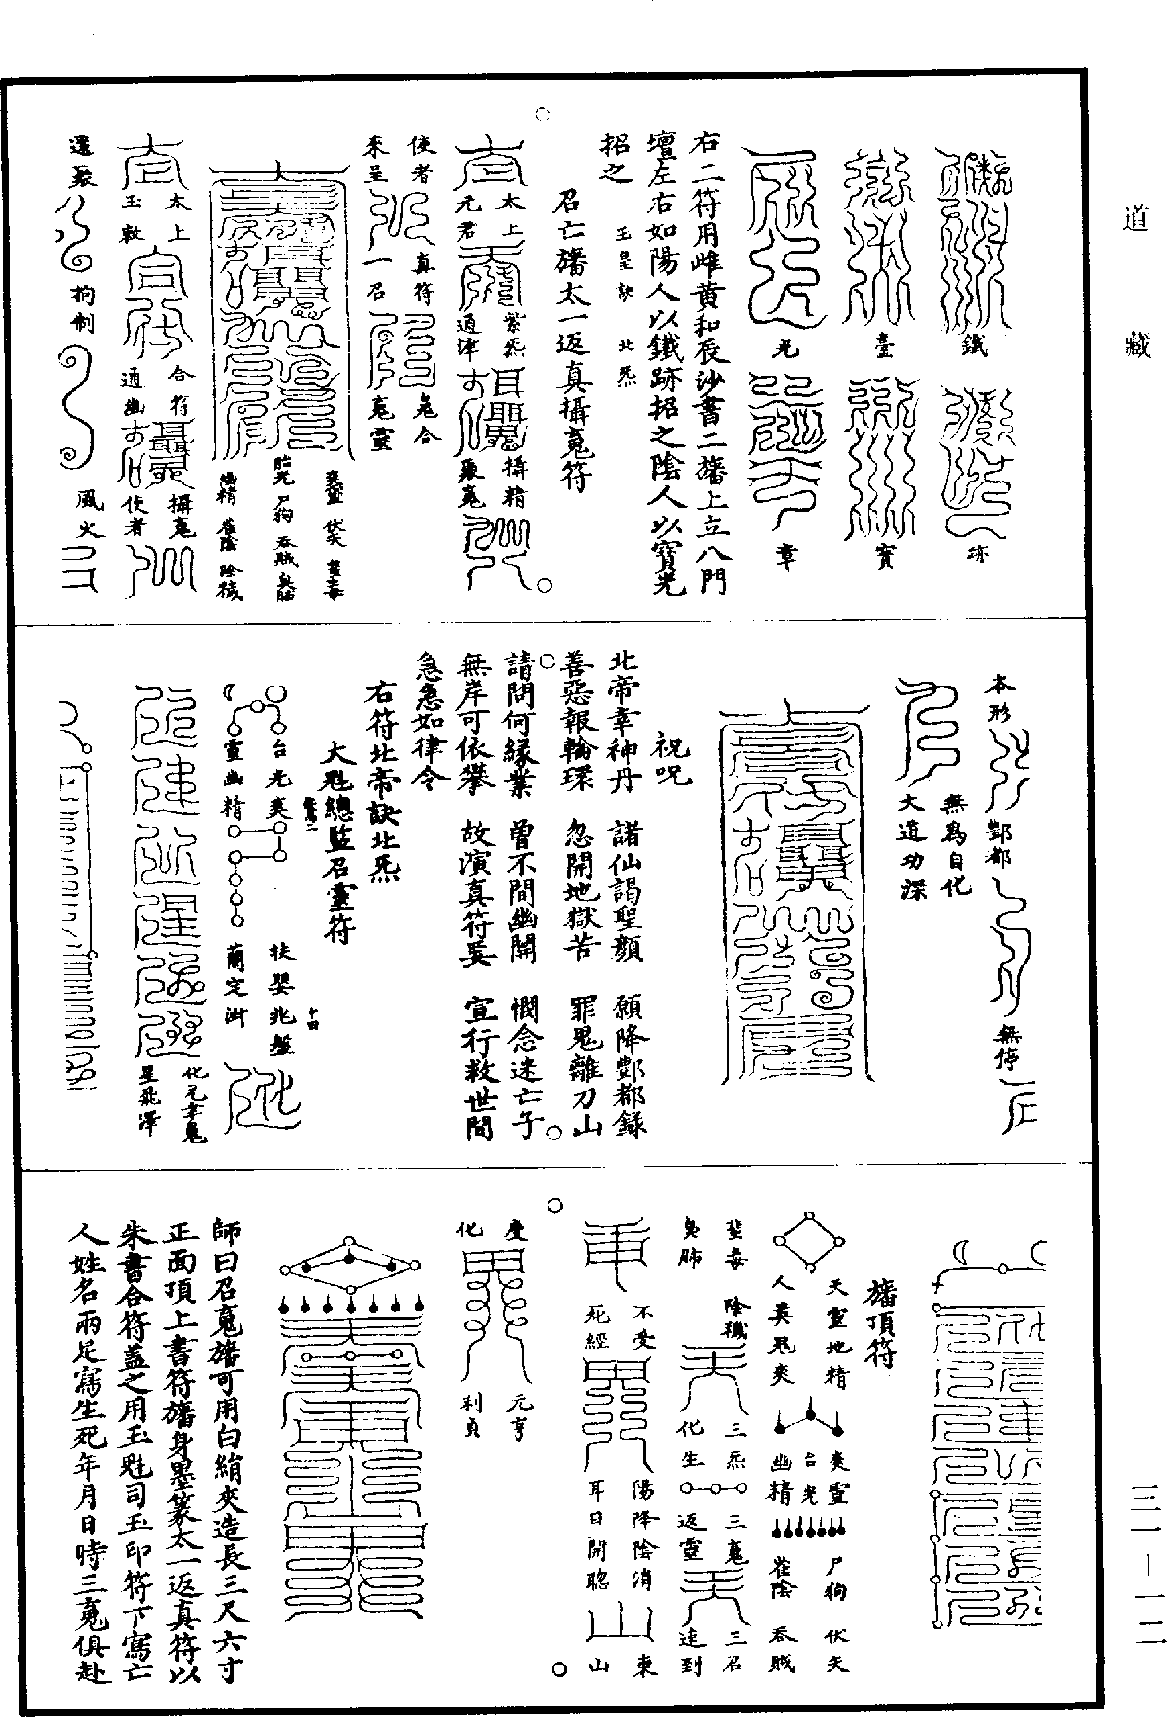 道藏
三一—一二
鐵 跡
臺 寶
光 章
右二符用雌黃和辰沙書二旛上立八門
壇左右如陽人以鐵跡招之陰人以寶光
招之 玉皇訣 北炁
召亡旛太一返真攝䰟符
太上
元君
紫炁
通津
攝精
聚䰟
使者
來呈
真符
一召
䰟靈
胎光 尸狗 吞賊 臭肺
幽精 雀陰 除穢
太上
玉敕
合符
通幽
攝䰟
使者
還聚
拘制
風火
本形
酆都
無停
無為自化
大道功深
祝呪
北帝幸神丹 諸仙謁聖顏 願降酆都錄
善惡報輪環 忽開地獄苦 罪鬼離刀山
請問何緣業 曾不間幽關 憫念迷亡子
無岸可依攀 故演真符奧 宣行救世間
急急如律令
右符北帝訣北炁
大魁總監召靈符
台光爽
靈幽精
扶嬰兆盤
蘭定
十四
化元幸䰟
星飛澤
旛頂符
天靈地精
人英鬼爽
爽靈
台光
幽精
尸狗
雀陰
伏矢
吞賊
蜚毒
臭肺
除穢
三炁
化生
三䰟
返靈
三召
速到
不受
死經
陽降陰消
耳目開聰
東
山
慶
化
元亨
利貞
師曰召䰟旛可用白絹夾造長三尺六寸
正面頂上書符旛身墨篆太一返真符以
朱書合符蓋之用玉魁司玉印符下寫亡
人姓名兩足寫生死年月日時三䰟俱赴